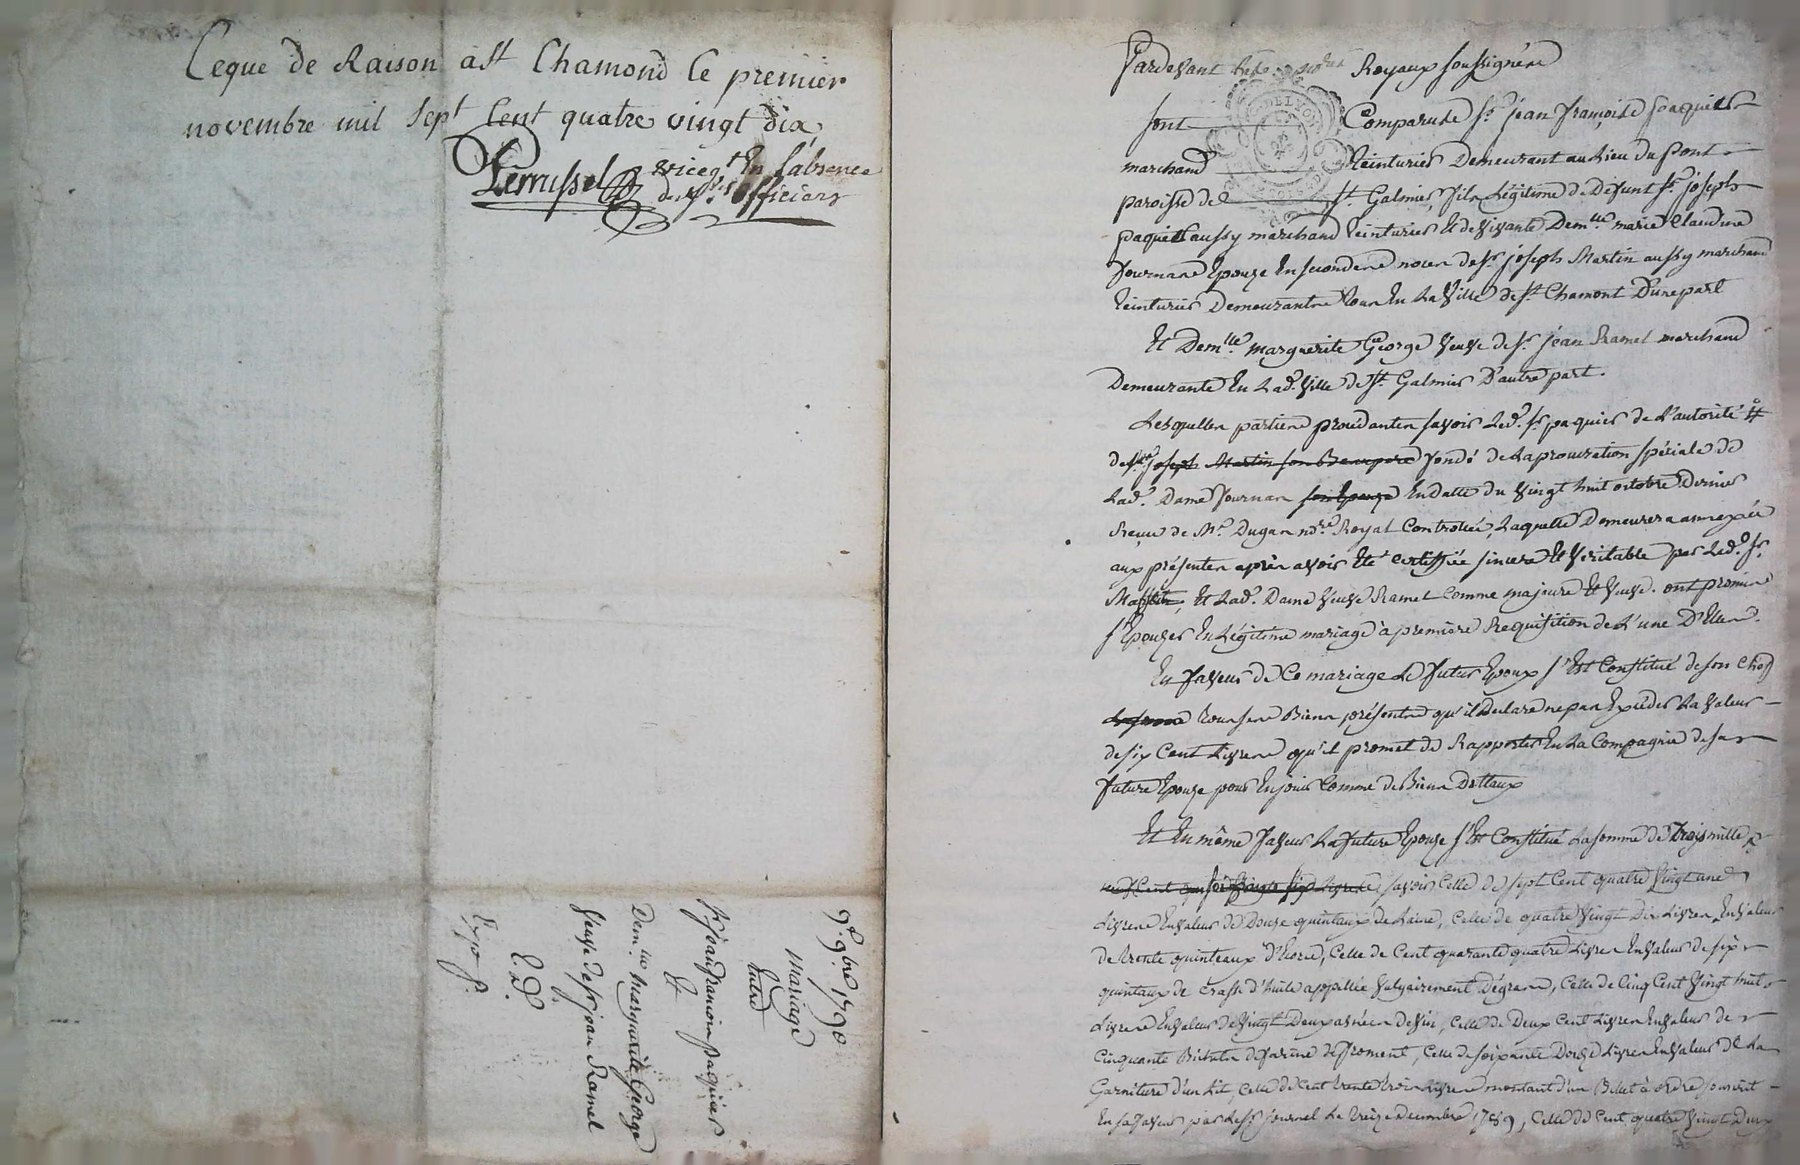 Ceque de Raison à St Chamond le premier
novembre mil sept Cent quatre vingt dix
en l'absence
de Mrs. officiers
9e. 9bre 1790
mariage
Entre
Sr jean François paquier
&
Dem.lle Marguerite George
veuve de Sr jean Ramel
E.D.
Expo. S.
Pardevant Royaux soussignés
sont Comparus Sr. jean François paquier
marchand teinturier Demeurant au Lieu du pont
paroisse de St. Galmier, fils Légitime de Défunt Sr. joseph
paquier aussy marchand teinturier Et de vivante Dem.lle marie Claudine
Journan Epouze En secondes noces de Sr. joseph Martin aussy marchand
teinturier Demeurants tous En La Ville de St Chamont D'une part
Et Dem.lle marguerite George Veuve de Sr. jean Ramel marchand
Demeurante En Lad. Ville de St. Galmier D'autre part.
Lesquelles parties procédantes savoir Led. Sr paquier de L'autorité #
de Sr. joseph Martin son Beaupere fondé de La procuration spéciale de
Lad. Dame Journan son Epouze En Datte du vingt huit octobre Dernier
Reçue de Me. Dugas no.re Royal Controllée, Laquelle Demeurera annexée
aux présentes après avoir Eté certiffiée sincere Et Véritable par Led. Sr.
Martin, Et Lad. Dame Veuve Ramel Comme majeure Et Veuve. ont promis
s'Epouzer En Légitime mariage à première Requisition de L'une D'Elles.
En faveur de Ce mariage Le futur Epoux s'Est Constitué de son Chef
La somme tous ses Biens présents qu'il Declare ne pas Excéder La valeur
de six Cent Livres qu'il promet de Rapporter En La Compagnie de sa
future Epouze pour En jouir Comme de Biens Dottaux
Et En même faveur La future Epouze s'Est Constitué La somme de Trois mille
savoir Celle de sept Cent quatre vingt une
Livres En valeur de Douze quintaux de Laine, Celle de quatre vingt Dix Livres En valeur
de trente quinteaux D'Ecorce, Celle de Cent quarante quatre Livres En valeur de six
quintaux de Crasse d'huile appellée Vulgairement Dégras, Celle de Cinq Cent Vingt huit
Livres En valeur de Vingt Deux asnées de Vin, Celle de Deux Cent Livres En valeur de
Cinquante Bichets de farine de froment, Celle de soixante Douze Livres En valeur de La
Garniture d'un Lit, Celle de Cent trente trois Livres montant d'un Billet à ordre souscrit
En sa faveur par Le Sr. journel Le treize Decembre 1789, Celle de Cent quatre Vingt Deux